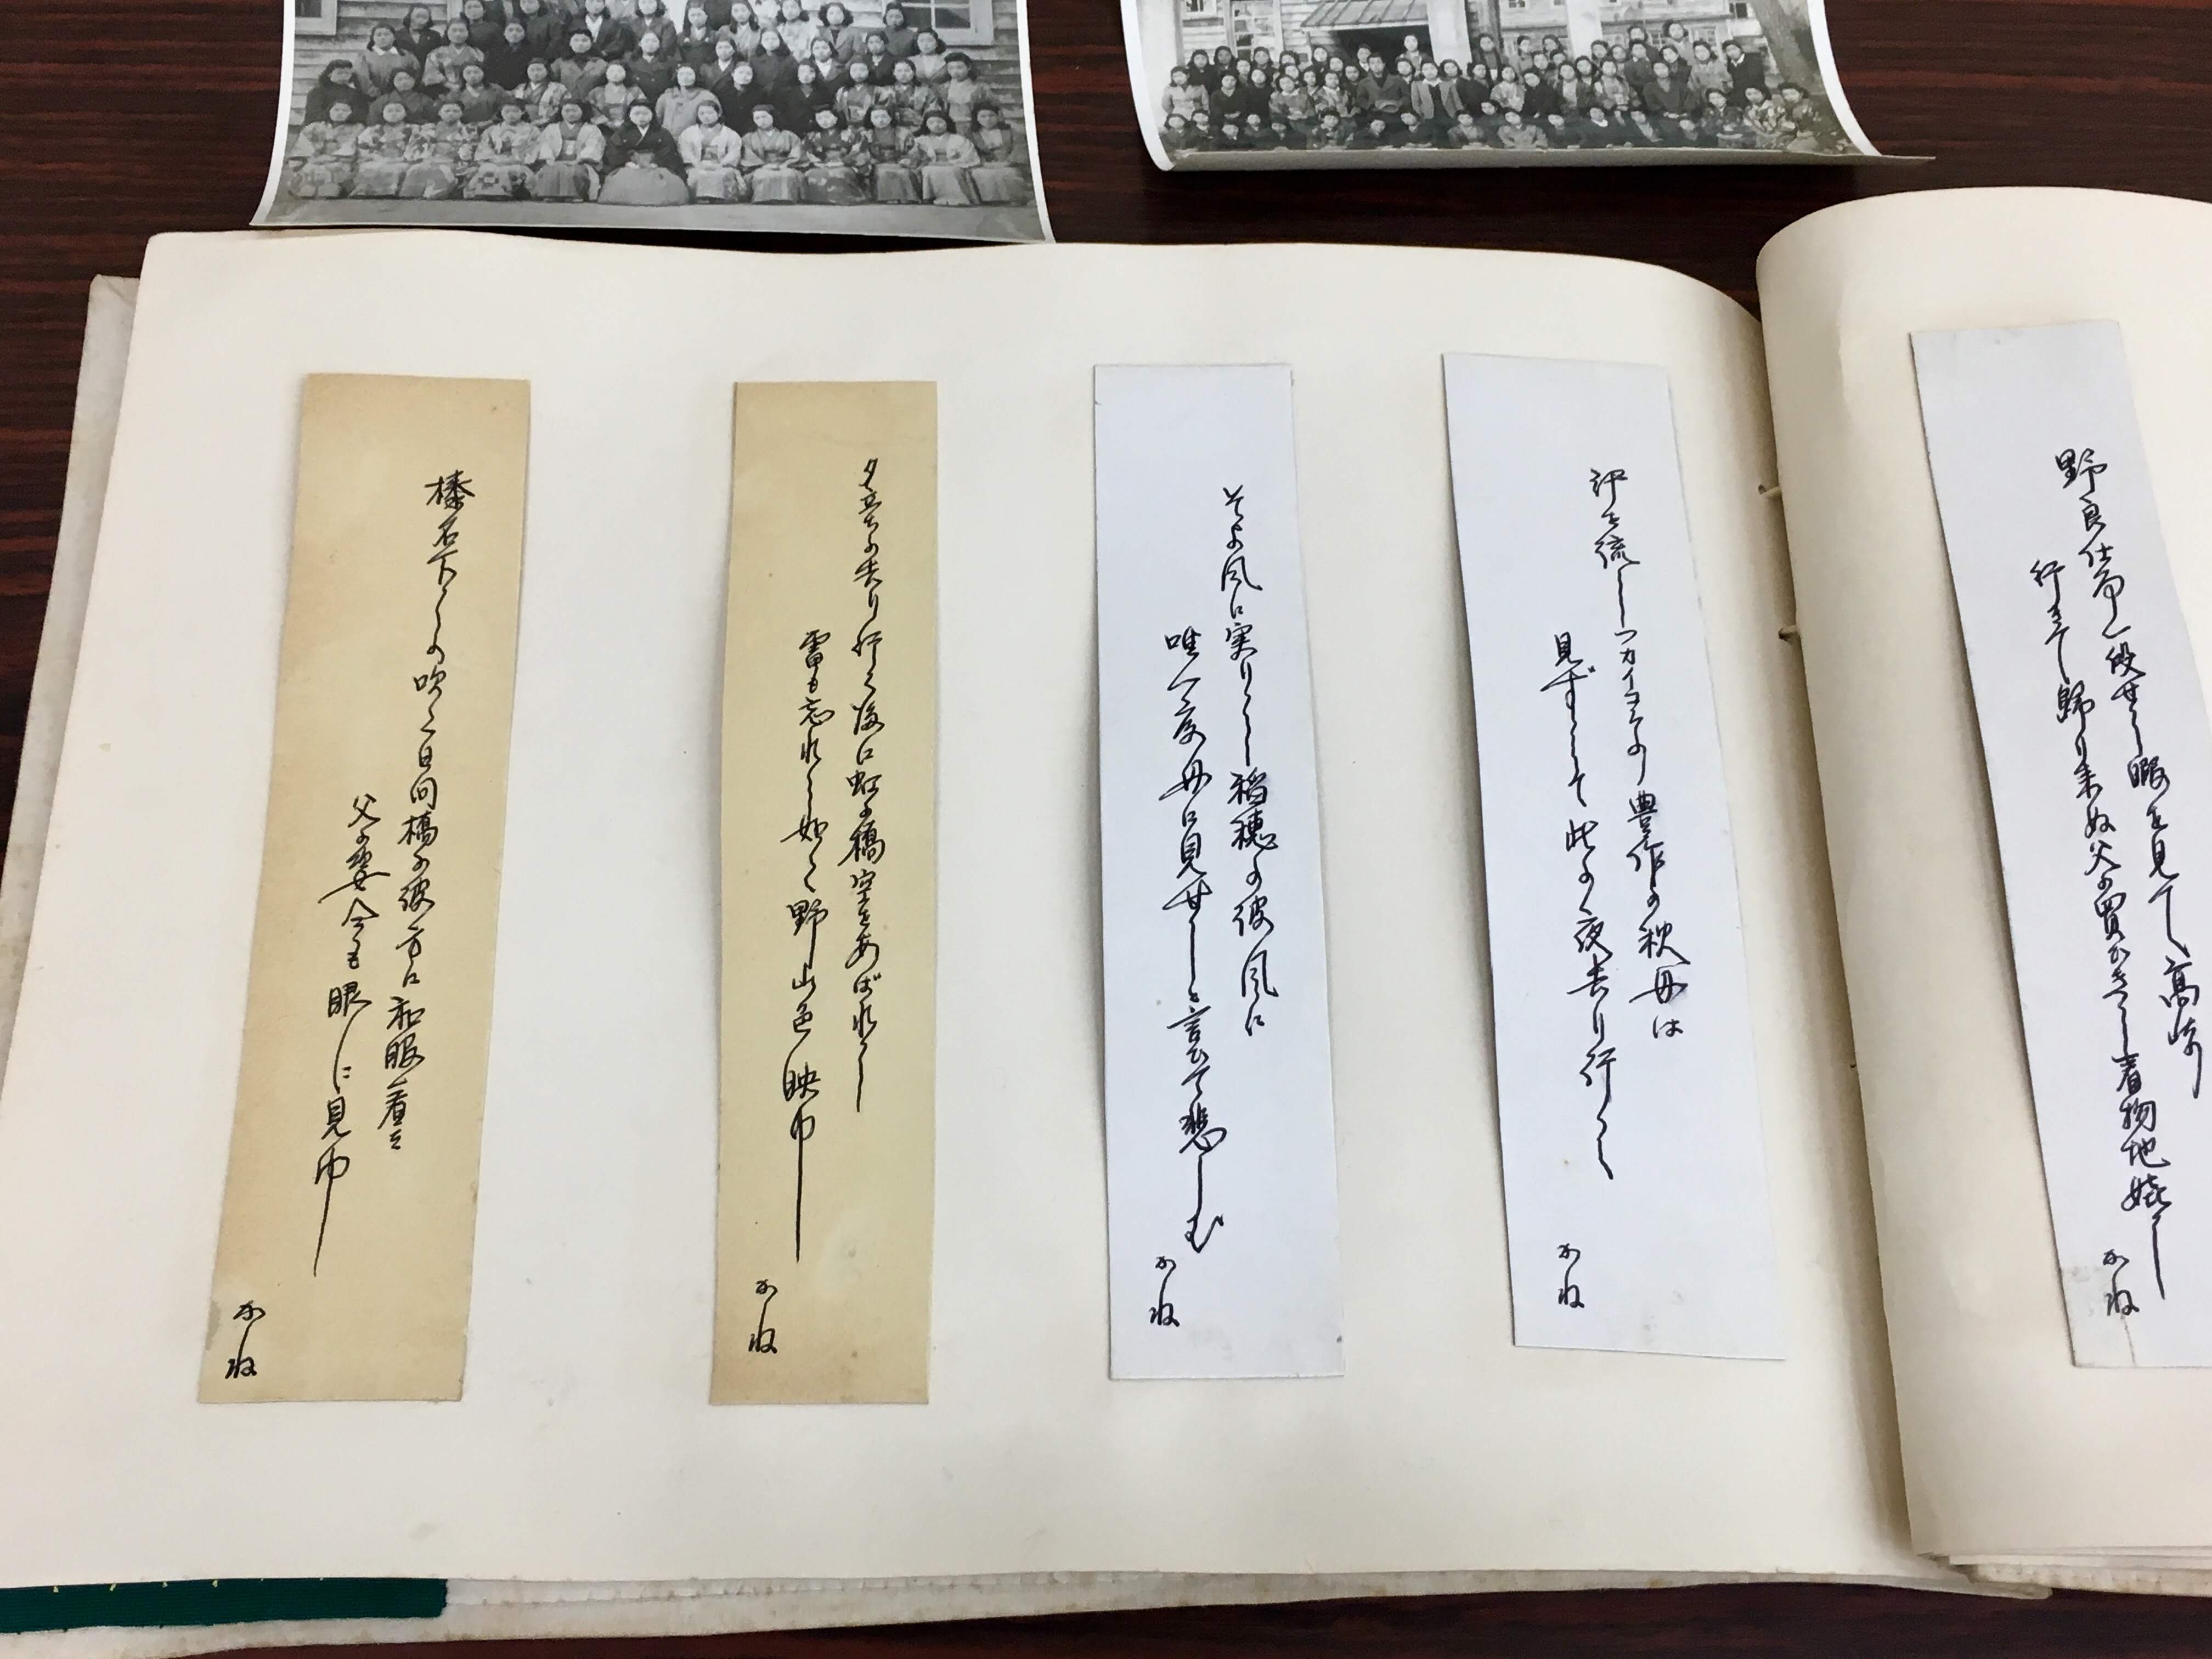 野良仕事一段せし暇を見て高崎
行きて帰り来ぬ父の買ひきし着物地嬉し
かね
汗を流しフカイコラの豊作の秋母は
見ずして此の夜去り行く
かね
そよ風に実りし稲穂の波風に
唯一度母に見せしと言ひて悲しむ
かね
夕立の去り行く後に虹の橋空をあばれし
雷も忘れし如く野山色映ゆ
かね
榛名下しの吹く日向橋の彼方に和服着た
父の姿今も眼に見ゆ
かね